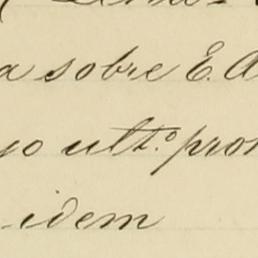 a sobre E. A
go ult.º pron
idem